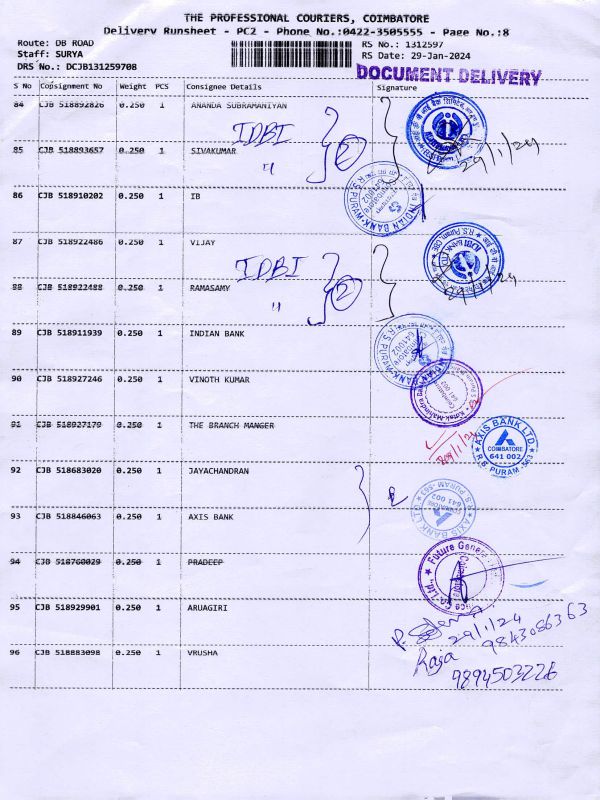 THE PROFESSIONAL COURIERS, COIMBATORE
Delivery Runsheet - PC2 - Phone No.:0422-3505555 - Page No.:8
Route: DB ROAD
Staff: SURYA
DRS No.: DCJB131259708
RS No.: 1312597
RS Date: 29-Jan-2024
DOCUMENT DELIVERY
S No Consignment No Weight PCS Consignee Details Signature
84 CJB 518892826 0.250 1 ANANDA SUBRAMANIYAN
IDBI 2
29/1/24
85 CJB 518893657 0.250 1 SIVAKUMAR
"
86 CJB 518910202 0.250 1 IB
INDIAN BANK R.S. PURAM 641002
87 CJB 518922486 0.250 1 VIJAY
IDBI 2
IDBI BANK LTD R.S. Puram, CBE
88 CJB 518922488 0.250 1 RAMASAMY
"
29/1/24
89 CJB 518911939 0.250 1 INDIAN BANK
INDIAN BANK R.S. PURAM 641002
90 CJB 518927246 0.250 1 VINOTH KUMAR
Kotak Mahindra Coimbatore 641 002
91 CJB 518927179 0.250 1 THE BRANCH MANGER
AXIS BANK LTD COIMBATORE 641 002 R.S. PURAM -563
92 CJB 518683020 0.250 1 JAYACHANDRAN
93 CJB 518846063 0.250 1 AXIS BANK
AXIS BANK LTD 641 002 R.S PURAM -563
94 CJB 518760029 0.250 1 PRADEEP
Future Genera
95 CJB 518929901 0.250 1 ARUAGIRI
29/1/24
9843086363
96 CJB 518883098 0.250 1 VRUSHA
Raja
9894503226